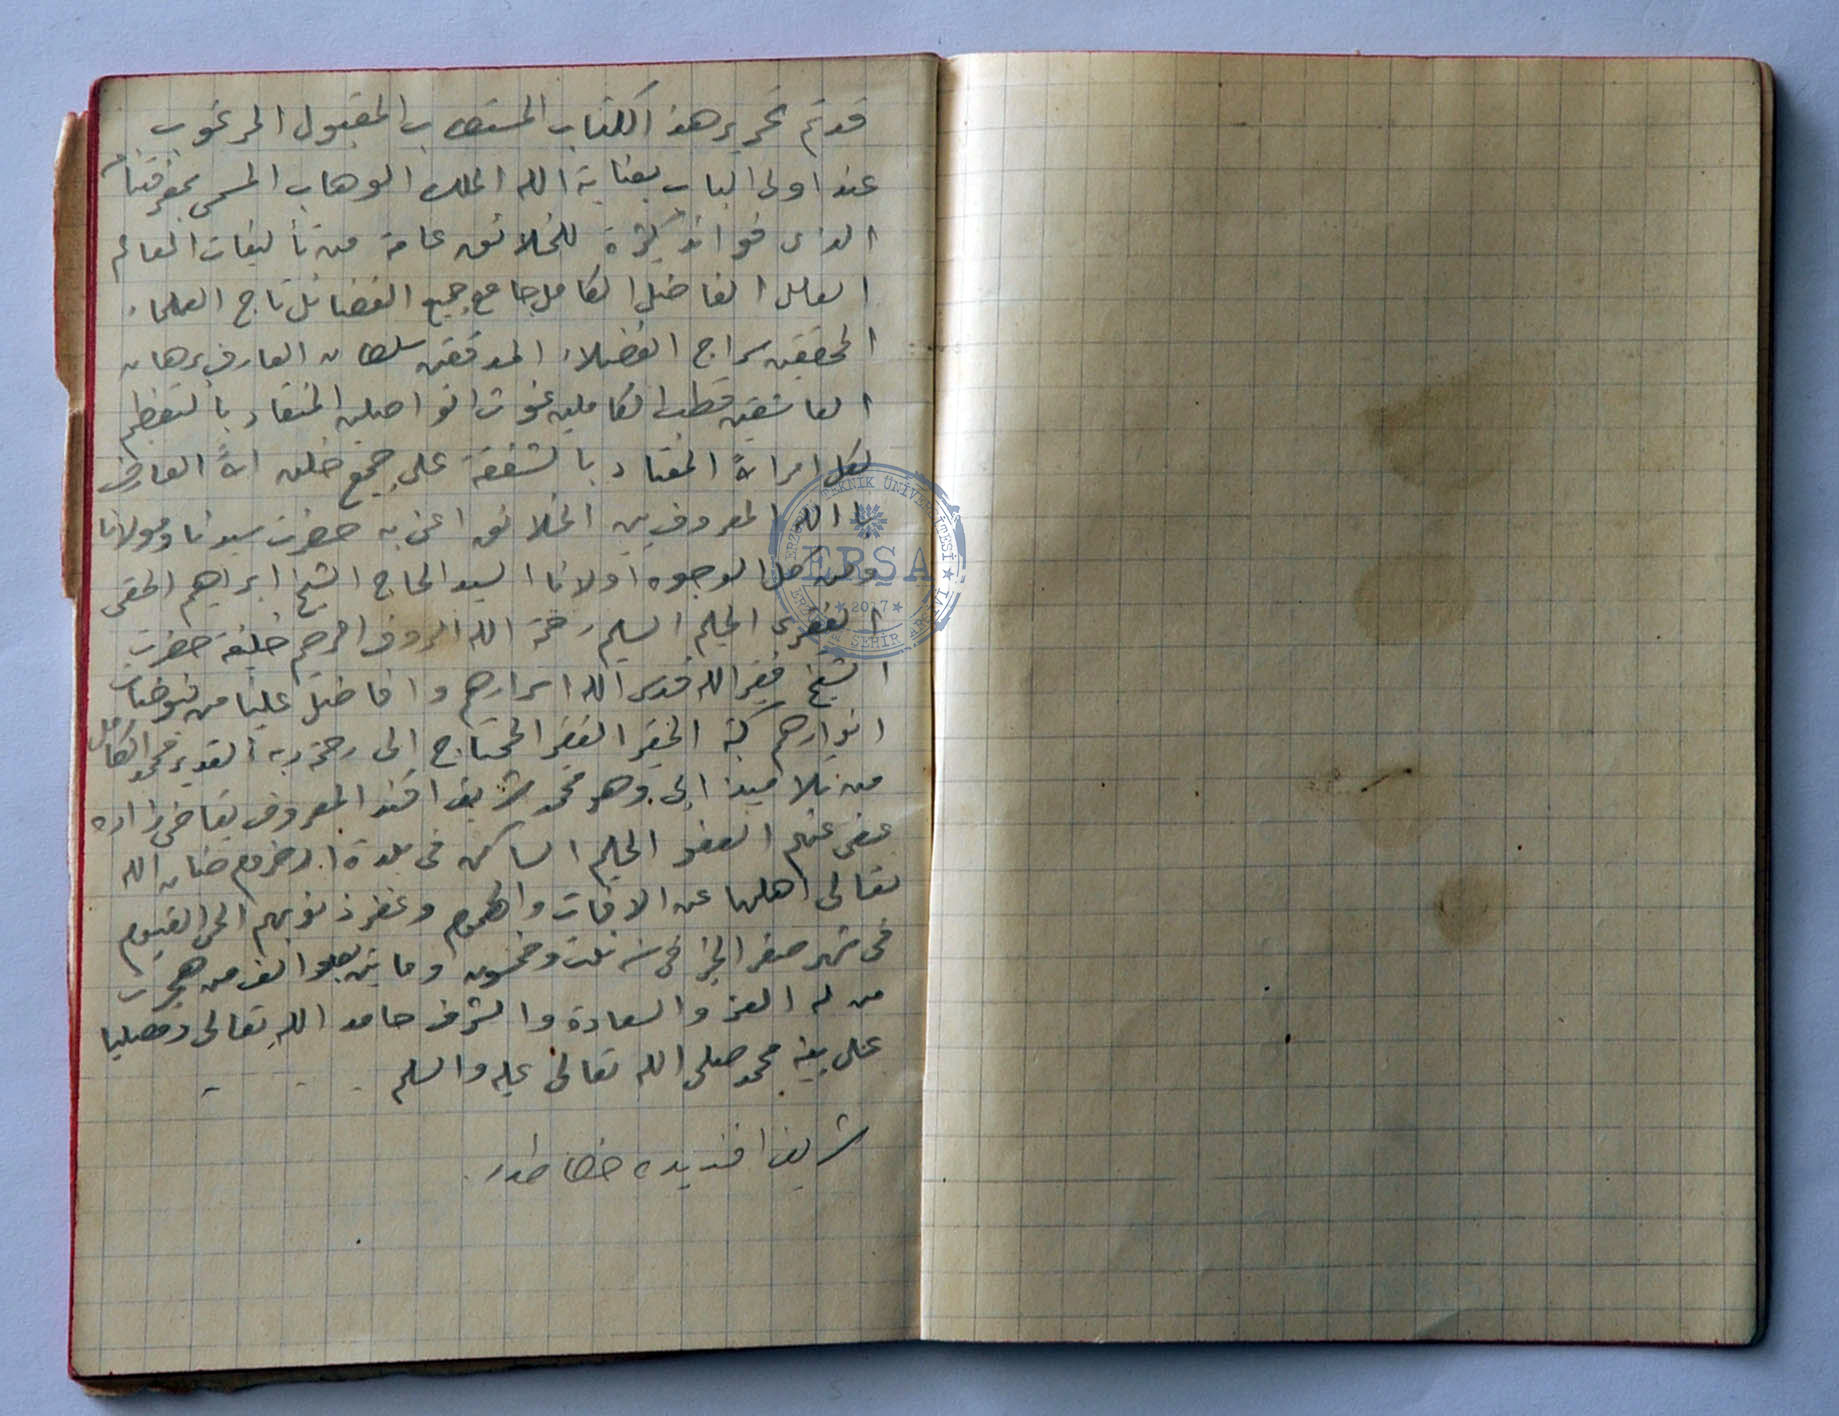 قد تم تحرير هذا الكتاب المستطاب المقبول المرغوب
عند اولى الباب بعناية الله الملك الوهاب المسمى بمعرفتنامه
الذى فوائد كثيرة للخلائق عامة من تأليفات العالم
العامل الفاضل الكامل جامع جميع الفضائل تاج العلماء
المحققين سراج الفضلاء المدققين سلطان العارف برهان
العاشقين قطب الكاملين غوث الواصلين المنقاد بالتعظيم
لكل امر الله المعتاد بالشفقة على جميع خلق الله العارف
با الله المعروف بين الخلائق اعنى به حضرت سيدنا ومولانا
ومن كل الوجوه اولانا السيد الحاج الشيخ ابراهيم الحقى
الفقرى الحليم السليم رحمة الله الرؤف الرحيم خليفة حضرت
الشيخ فقير الله قدس الله اسرارهم وافاض علينا من فيوضات
انوارهم كتبه الحقير الفقير المحتاج الى رحمة ربه القدير محمد الكامل
من تلاميذ ابى وهو محمد شريف افند المعروف بقاضى زاده
عفى عنهم العفو الحليم الساكن فى بلدة صان الله
تعالى اهلها عن الافات والهموم وغفر ذنوبهم الحى القيوم
فى شهر صفر الخير فى سنه ثلث وخمسون ومأتين بعد الف من هجرت
من له العز والسعادة والشرف حامد الله تعالى ومصليا
على نبيه محمد صلى الله تعالى عليه والسلم
شريف افنديده خطا طدر
ERZURUM TEKNİK ÜNİVERSİTESİ
ERŞA
★ 2017 ★
ERZURUM ŞEHİR ARŞİVİ